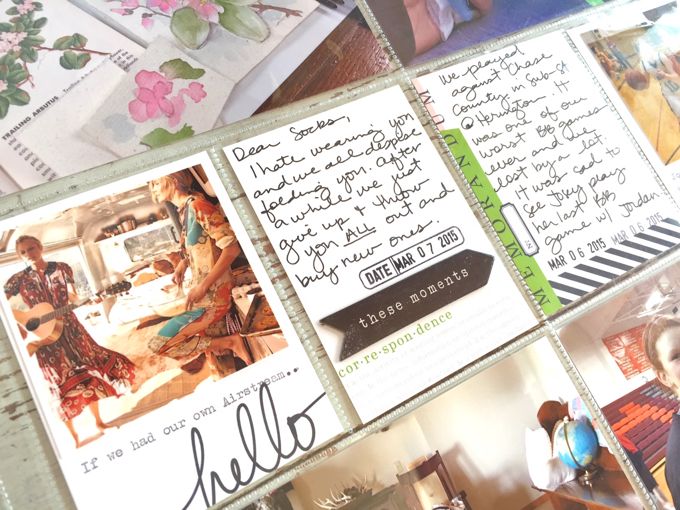 TRAILING ARBUTUS
If we had our own Airstream..
hello
Dear Socks,
I hate wearing you
and we all despise
feeding you. After
a while we just
give up & throw
you ALL out and
buy new ones.
DATE MAR 07 2015
these moments
cor·re·spon·dence
MEMORANDUM
we played
against Chase
County in Sub-St
@ Herington. It
was one of our
worst BB games
ever and we
lost by a lot.
It was sad to
see Joey play
her last BB
game w/ Jordan.
MAR 06 2015 MAR 06 2015